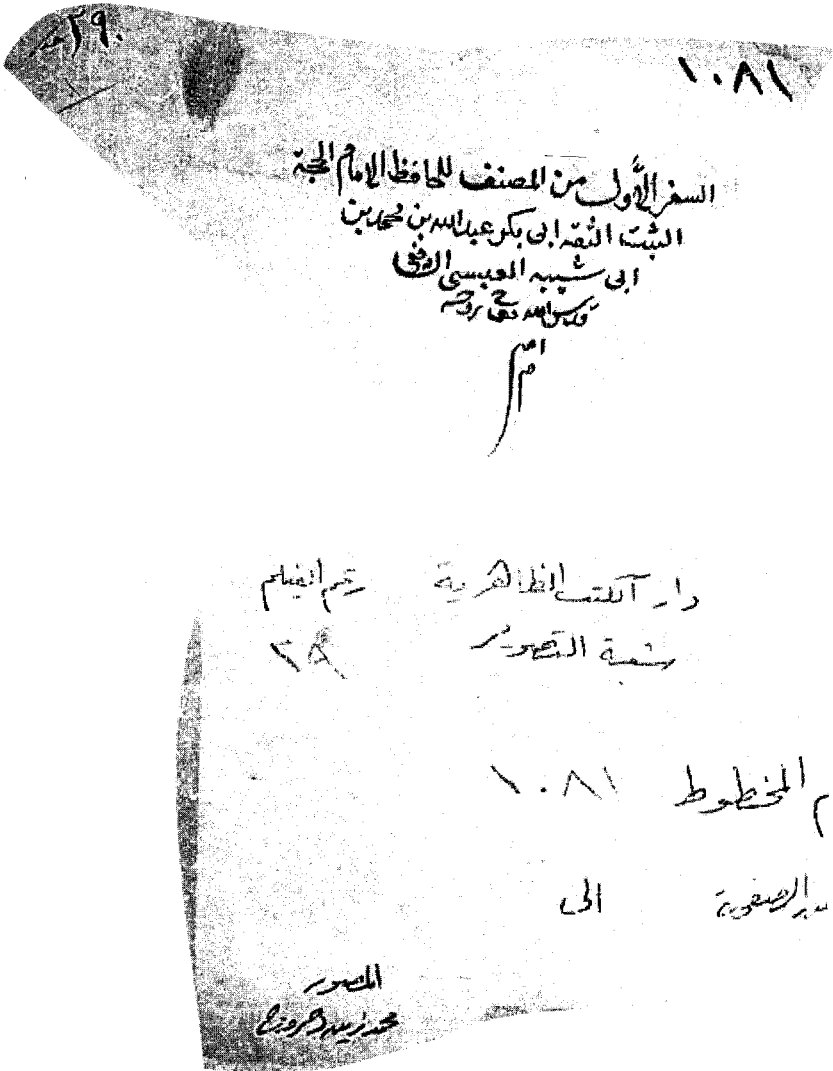 ١٠٨١
٢٩٠
السفر الأول من المصنف للحافظ الإمام الحجة
الثبت الثقة ابى بكر عبد الله بن محمد بن
ابى شيبه العبسى الكوفى
قدس الله تعالى روحه
ام
دار الكتب الظاهرية رقم الفيلم
شعبة التصوير ٢٨
م المخطوط ١٠٨١
الصفحة الى
المصور
محمد